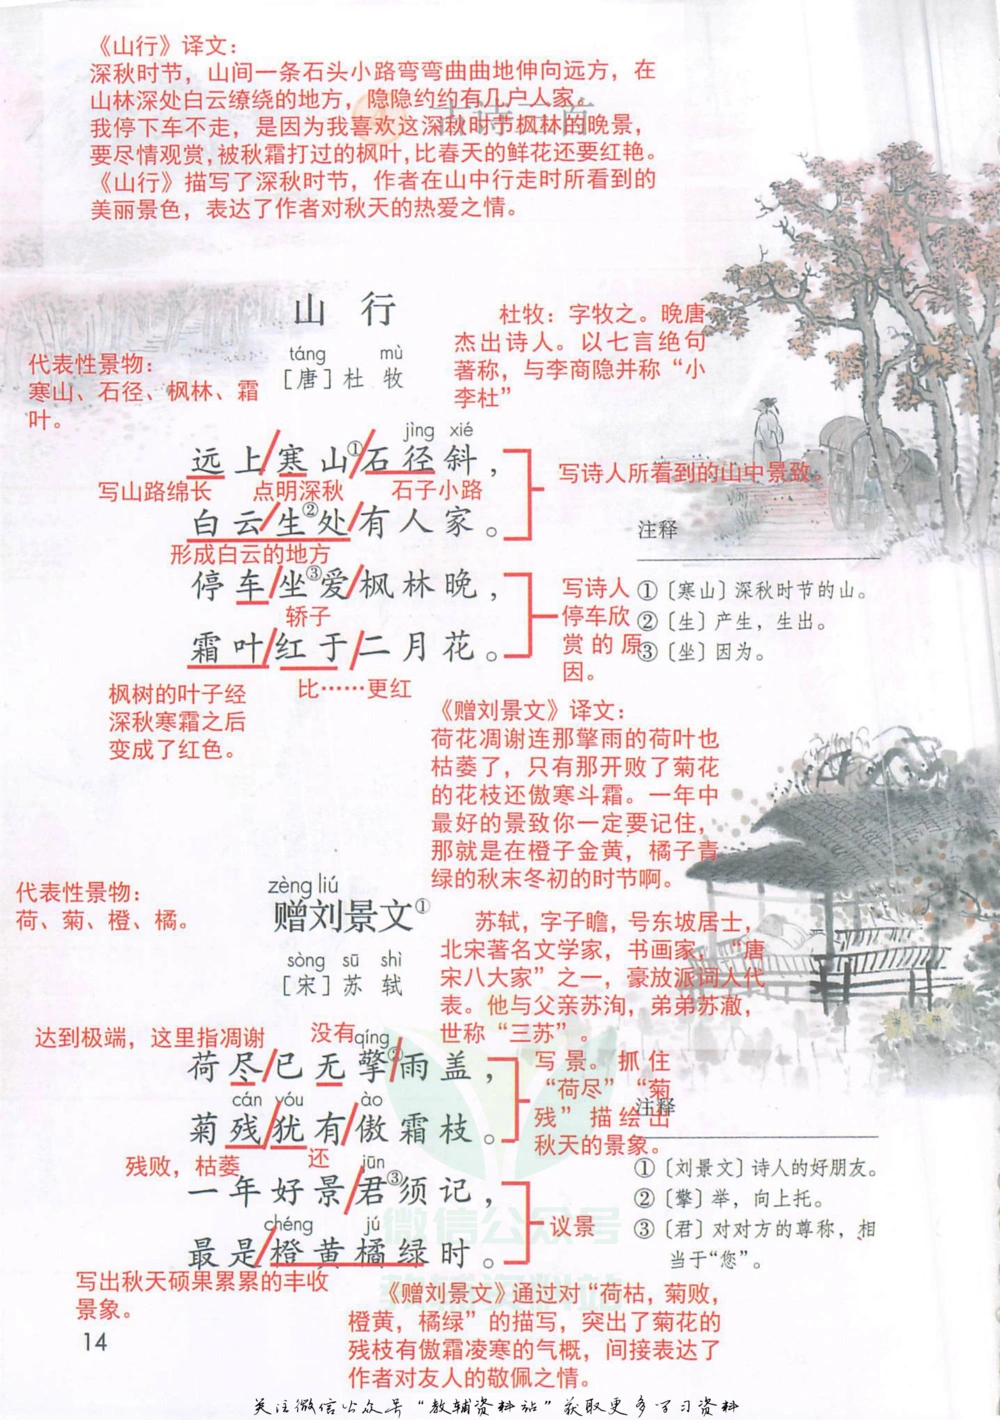 《山行》译文：
深秋时节，山间一条石头小路弯弯曲曲地伸向远方，在
山林深处白云缭绕的地方，隐隐约约有几户人家。
我停下车不走，是因为我喜欢这深秋时节枫林的晚景，
要尽情观赏，被秋霜打过的枫叶，比春天的鲜花还要红艳。
《山行》描写了深秋时节，作者在山中行走时所看到的
美丽景色，表达了作者对秋天的热爱之情。
山 行
táng mù
［唐］杜 牧
杜牧：字牧之。晚唐
杰出诗人。以七言绝句
著称，与李商隐并称“小
李杜”
代表性景物：
寒山、石径、枫林、霜
叶。
jìng xié
远上/寒山①/石径斜，
写山路绵长 点明深秋 石子小路
写诗人所看到的山中景致。
白云/生②处/有人家。
形成白云的地方
停车/坐③爱/枫林晚，
轿子
霜叶/红于/二月花。
枫树的叶子经
深秋寒霜之后
变成了红色。
比……更红
写诗人
停车欣
赏的原
因。
注释
①〔寒山〕深秋时节的山。
②〔生〕产生，生出。
③〔坐〕因为。
《赠刘景文》译文：
荷花凋谢连那擎雨的荷叶也
枯萎了，只有那开败了菊花
的花枝还傲寒斗霜。一年中
最好的景致你一定要记住，
那就是在橙子金黄，橘子青
绿的秋末冬初的时节啊。
代表性景物：
荷、菊、橙、橘。
zèng liú
赠刘景文①
sòng sū shì
［宋］苏 轼
苏轼，字子瞻，号东坡居士，
北宋著名文学家，书画家，“唐
宋八大家”之一，豪放派词人代
表。他与父亲苏洵，弟弟苏澈，
世称“三苏”。
达到极端，这里指凋谢 没有
qíng
荷尽/已无擎②/雨盖，
cán yóu ào
菊残/犹有/傲霜枝。
残败，枯萎 还
写景。抓住
“荷尽”“菊
残”描绘出
秋天的景象。
jūn
一年好景/君③须记，
chéng jú
最是/橙黄橘绿时。
议景
写出秋天硕果累累的丰收
景象。
注释
①〔刘景文〕诗人的好朋友。
②〔擎〕举，向上托。
③〔君〕对对方的尊称，相
当于“您”。
《赠刘景文》通过对“荷枯，菊败，
橙黄，橘绿”的描写，突出了菊花的
残枝有傲霜凌寒的气概，间接表达了
作者对友人的敬佩之情。
微信公众号
教辅资料站
14
关注微信公众号“教辅资料站”获取更多学习资料